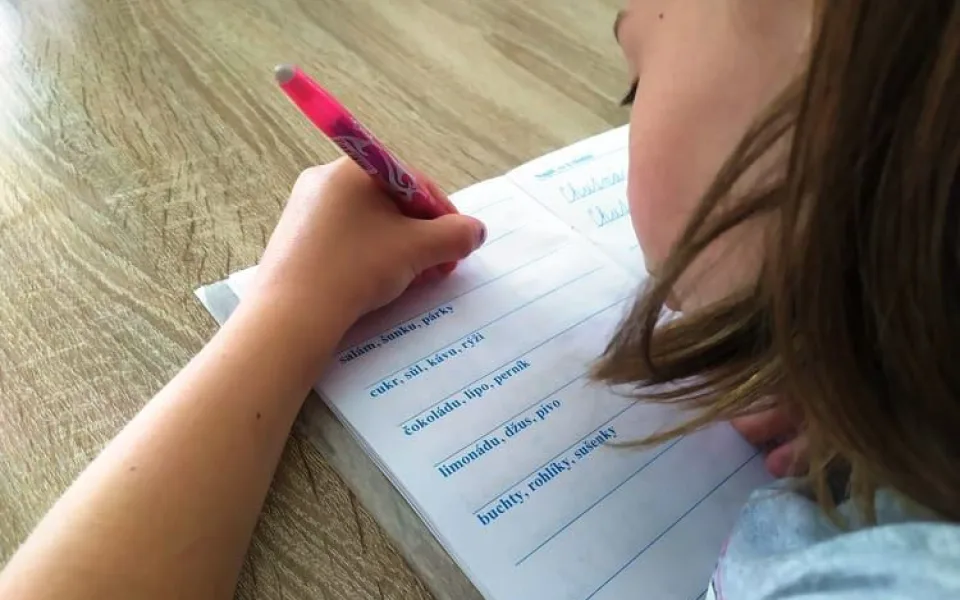 salám, šunku, párky
cukr, sůl, kávu, rýži
čokoládu, lipo, perník
limonádu, džus, pivo
buchty, rohlíky, sušenky